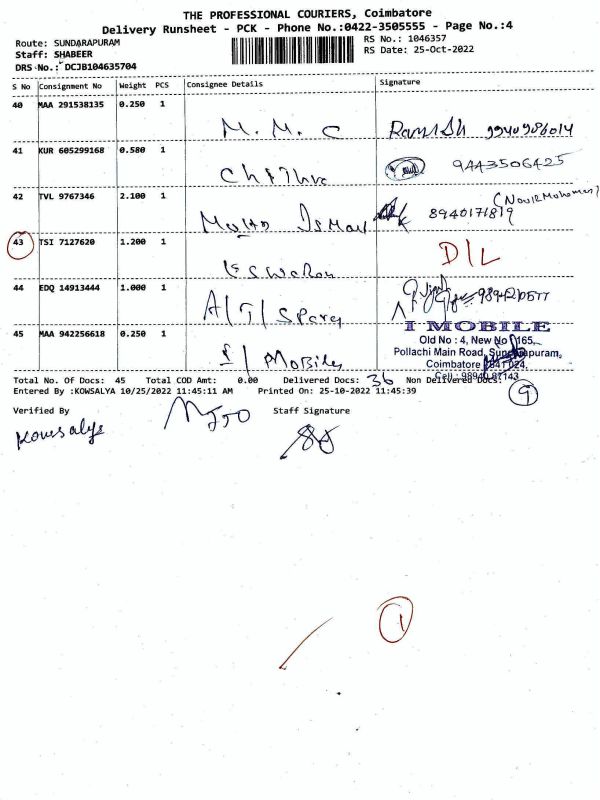 THE PROFESSIONAL COURIERS, Coimbatore
Delivery Runsheet - PCK - Phone No.:0422-3505555 - Page No.:4
Route: SUNDARAPURAM
Staff: SHABEER
DRS No.: DCJB104635704
RS No.: 1046357
RS Date: 25-Oct-2022
S No Consignment No Weight PCS Consignee Details Signature
40 MAA 291538135 0.250 1
M. M. C Ramesh 9940986014
41 KUR 605299168 0.580 1
Chithra 9443506425
42 TVL 9767346 2.100 1
Mohd Ismail 8940171819
43 TSI 7127620 1.200 1 D/L
Eswaran
44 EDQ 14913444 1.000 1
A/T/ Spares
45 MAA 942256618 0.250 1
I/ Mobiles
I MOBILE
Old No : 4, New No 165,
Pollachi Main Road, Sundarapuram,
Coimbatore 641 024.
Cell : 98940 87143
Total No. Of Docs: 45 Total COD Amt: 0.00 Delivered Docs: 36 Non Delivered Docs: 9
Entered By :KOWSALYA 10/25/2022 11:45:11 AM Printed On: 25-10-2022 11:45:39
Verified By Staff Signature
Kowsalya
1